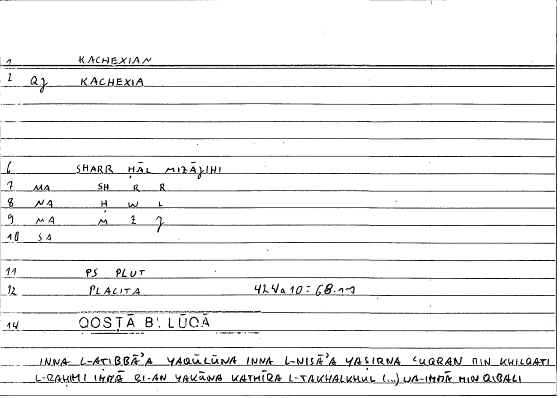 1 KACHEXIAN
2 QJ KACHEXIA
6 SHARR ḤĀL MIZĀJIHI
7 MA SH R R
8 NA Ḥ W L
9 MA M Z J
10 SA
11 PS PLUT
12 PLACITA 424a10 = 68.17
14 QOSṬĀ B. LŪQĀ
INNA L-ATIBBĀ'A YAQŪLŪNA INNA L-NISĀ'A YAṢIRNA ʿUQRAN MIN KHILQATI
L-RAḤIMI IMMĀ BI-AN YAKŪNA KATHĪRA L-TAKHALKHUL (...) WA-IMMĀ MIN QIBALI